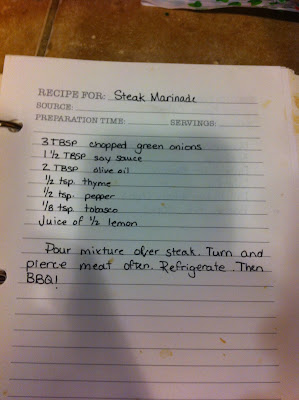 RECIPE FOR: Steak Marinade
SOURCE:
PREPARATION TIME: SERVINGS:
3 TBSP chopped green onions
1 1/2 TBSP soy sauce
2 TBSP olive oil
1/2 tsp. thyme
1/2 tsp. pepper
1/8 tsp. tobasco
Juice of 1/2 lemon
Pour mixture over steak. Turn and
pierce meat often. Refrigerate. Then
BBQ!